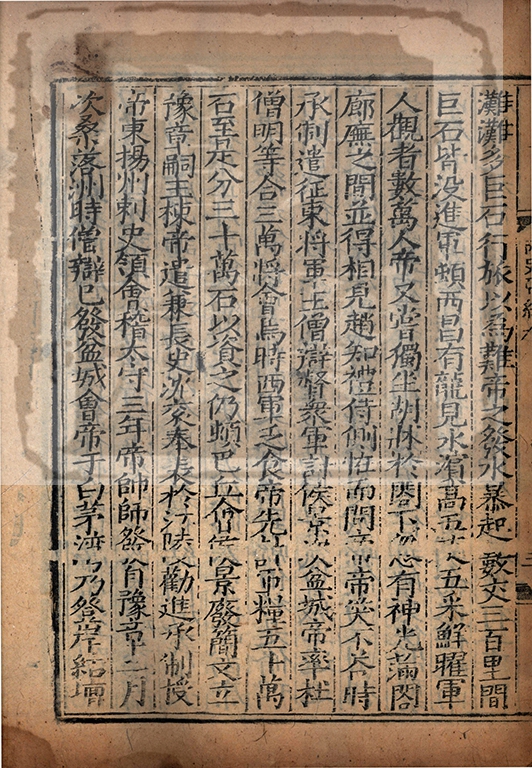 灘灘多巨石行旅以爲難帝之發水暴起數丈三百里間
巨石皆没進軍頓西昌有龍見水濱高五丈五采鮮曜軍
人觀者數萬人帝又嘗獨坐胡牀於閤下忽有神光滿閤
廊廡之間並得相見趙知禮侍側怪而問 帝帝笑不答時
承制遣征東將軍王僧辯督衆軍討侯景 次盆城帝率杜
僧明等合三萬將會焉時西軍乏食帝先 軍糧五十萬
石至是分三十萬石以資之仍頓巴丘會侯景廢簡文立
豫章嗣王棟帝遣兼長史沈衮奉表於江陵勸進承制授
帝東揚州刺史領會稽太守三年帝帥師發自豫章二月
次桑落洲時僧辯已發盆城會帝于白茅灣乃登岸結壇